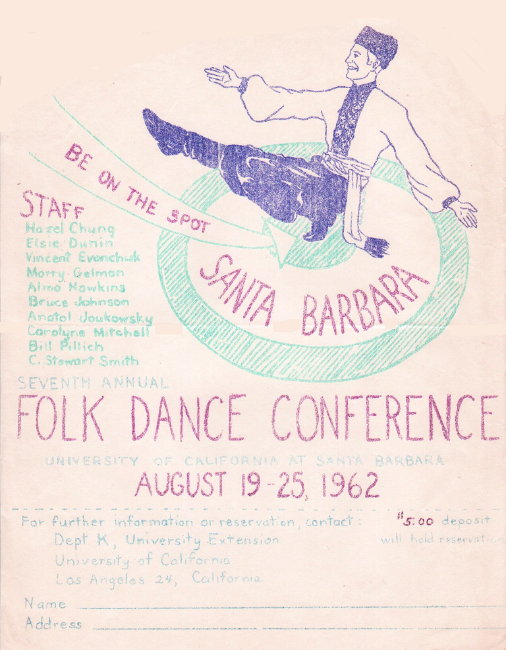 BE ON THE SPOT
STAFF
Hazel Chung
Elsie Dunin
Vincent Evanchuk
Morry Gelman
Alma Hawkins
Bruce Johnson
Anatol Joukowsky
Carolyne Mitchell
Bill Pillich
C. Stewart Smith
SANTA BARBARA
SEVENTH ANNUAL
FOLK DANCE CONFERENCE
UNIVERSITY OF CALIFORNIA AT SANTA BARBARA
AUGUST 19-25, 1962
For further information or reservation, contact:
Dept K, University Extension
University of California
Los Angeles 24, California
$5.00 deposit
will hold reservation
Name
Address